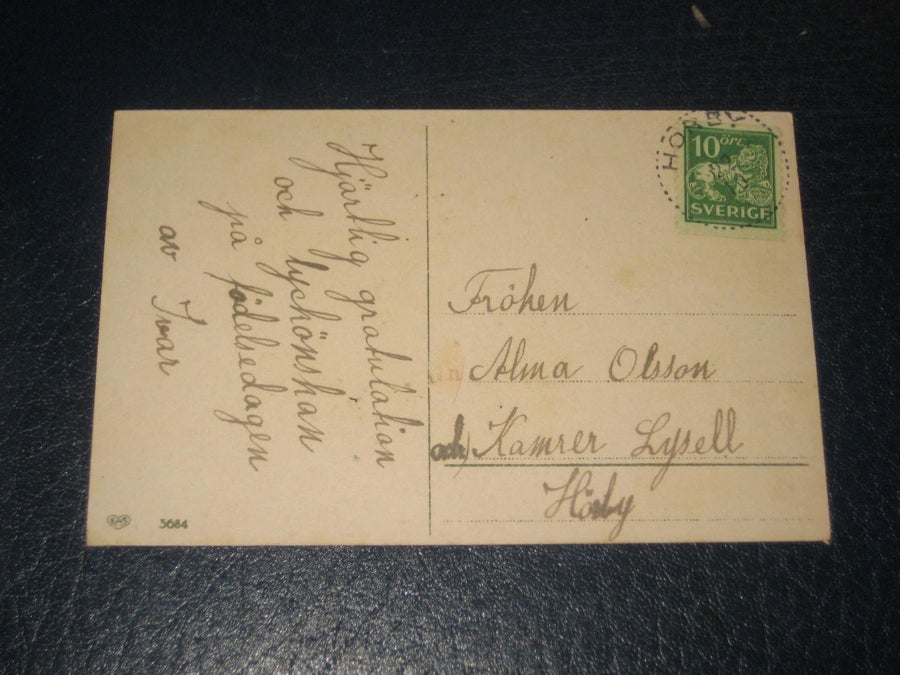 Hjärtlig gratulation
och lyckönskan
på födelsedagen
av Ivar
EAS 3684
HÖRBY
10 ÖRE
SVERIGE
Fröken
Alma Olsson
adr) Kamrer Lysell
Hörby